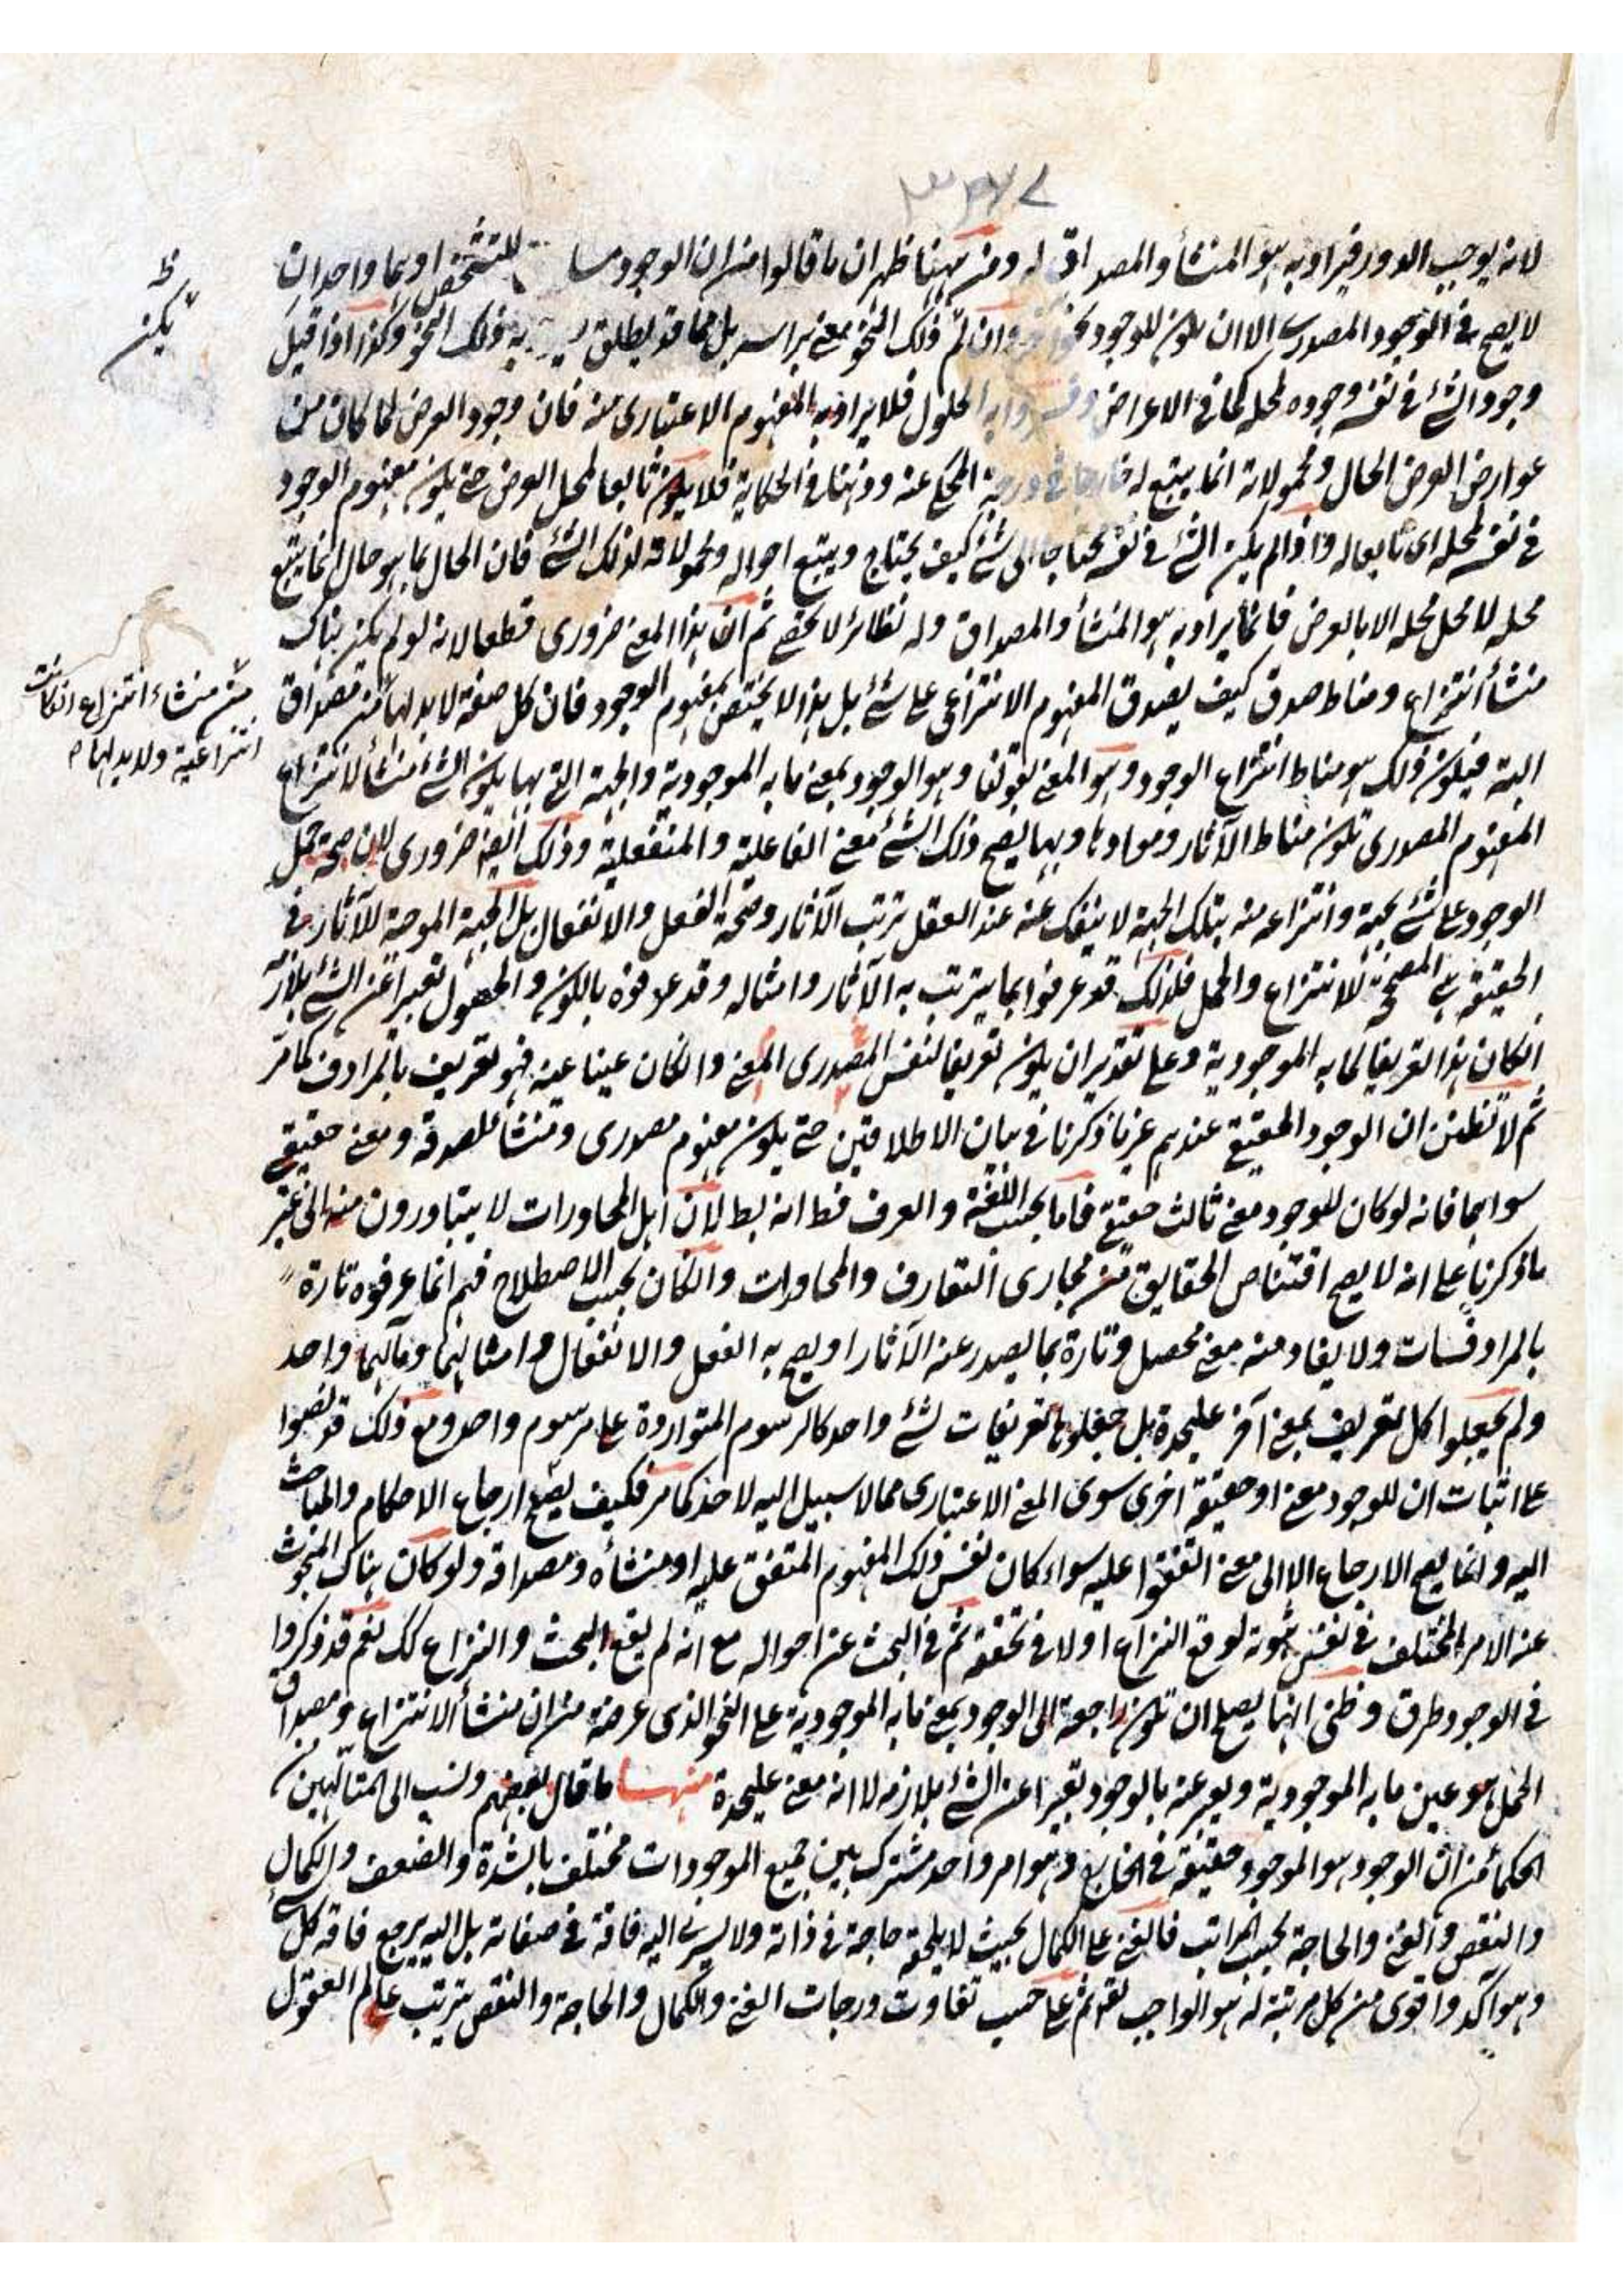 ٣٣٧٤
لانه يوجب الدور فيراد به هو المنشأ والمصداق له ومن ههنا ظهر ان ما قالوا من ان الوجود مسا للتشخص او هما واحد ان
لا يصح في الوجود المصدري الا ان يكون للوجود نحو وان لم ذلك النحو معنى براسه بل مما قد يطلق به ذلك النحو وكذا اذا قيل
وجود الشئ في نفسه وجوده لمحله كما في الاعراض الحلول فلا يراد به المفهوم الاعتباري منه فان وجود العرض لما كان من
عوارض العرض الحال ومحمولاته انما يتبع له خارجا في درجة المحكي عنه وذهنا في الحكاية فلا يكون تابعا لمحل العرض حتى يكون مفهوم الوجود
في نفسه لمحله اى تابعا له واذا لم يكن الشئ في نفسه محتاجا الى شئ كيف يحتاج ويتبع احواله ومحمولاته لذلك الشئ فان الحال بما هو حال انما يتبع
محله لا محل محله الا بالعرض فانما يراد به هو المنشأ والمصداق وله نظائر لا تحصى ثم ان هذا المعنى ضروري قطعا لانه لو لم يكن هناك
منشأ انتزاع ومناط صدق كيف يصدق المفهوم الانتزاعي على شئ بل هذا لا يختص بمفهوم الوجود فان كل صفة لابد لها من مصداق
البتة فيكون ذلك هو مناط انتزاع الوجود وهو المعنى بقولنا وهو الوجود بمعنى ما به الموجودية والجهة التي بها يكون الشئ منشأ لانتزاع
المفهوم المصدري تكون مناط الآثار وموادها وبها يصح ذلك الشئ معنى الفاعلية والمنفعلية وذلك ايضا ضروري لان صحة حمل
الوجود على شئ بجهة وانتزاعه منه بتلك الجهة لا ينفك عنه عند العقل ترتب الآثار وصحة الفعل والانفعال بل الجهة الموجبة للآثار في
الحقيقة هي المصححة للانتزاع والحمل فلذلك قد عرفوا بما يترتب به الآثار وامثاله وقد عرفوه بالكون والحصول تعبيرا عن الشئ بلازمه
ان كان هذا تعريفا لما به الموجودية وعلى تقدير ان يكون تعريفا لنفس المصدري المعنى وان كان عينا عينه فهو تعريف بالمرادف كما مر
ثم لا تظنن ان الوجود الحقيقي عندهم غير ما ذكرنا في بيان الاطلاقين حتى يكون مفهوم مصدري ومنشأ لصدقه ومعنى حقيقي
سواهما فانه لو كان للوجود معنى ثالث حقيقي فاما بحسب اللغة والعرف فظ انه بط لان اهل المحاورات لا يتبادرون منه الى غير
ما ذكرنا على انه لا يصح اقتناص الحقايق من مجاري التعارف والمحاورات وان كان بحسب الاصطلاح فهم انما عرفوه تارة
بالمرادفات ولا يفاد منه معنى محصل وتارة بما يصدر عنه الآثار او يصح به الفعل والانفعال وامثالهما ومآلهما واحد
ولم يجعلوا كل تعريف بمعنى آخر عليحدة بل جعلوها تعريفات لشئ واحد كالرسوم المتواردة على مرسوم واحد ومع ذلك قد نصبوا
على اثبات ان للوجود معنى او حقيقة اخرى سوى المعنى الاعتباري مما لا سبيل اليه لاحد كما مر فكيف يصح ارجاع الاحكام والمباحث
اليه وانما يصح الارجاع الا الى معنى اتفقوا عليه سواء كان نفس ذلك المفهوم المتفق عليه او منشأه ومصداقه ولو كان هناك المبحوث
عنه الامر المختلف في نفس ثبوته لوقع النزاع اولا في تحققه ثم في البحث عن احواله مع انه لم يقع البحث والنزاع كك نعم قد ذكروا
في الوجود طرق وظني انها يصلح ان تكون راجعة الى الوجود بمعنى ما به الموجودية على النحو الذى عرضه من ان منشأ الانتزاع ومصداق
الحمل هو عين ما به الموجودية ويعبر عنه بالوجود تعبيرا عن الشئ بلازمه لا انه معنى عليحدة منها ما قال بعضهم ونسب الى المتألهين من
الحكماء من ان الوجود هو الموجود حقيقة في الخارج وهو امر واحد مشترك بين جميع الموجودات مختلف بالشدة والضعف والكمال
والنقص والغنى والحاجة بحسب المراتب فالغنى على الكمال بحيث لا يلحقه حاجة في ذاته ولا يسري اليه فاقة في صفاته بل اليه يرجع فاقة كل شئ
وهو آكد واقوى من كل مرتبة له هو الواجب تعه ثم على حسب تفاوت درجات الغنى والكمال والحاجة والنقص يترتب عالم العقول
ظ
يكن
من منشاء انتزاع ان كانت
انتزاعية ولابد لها م